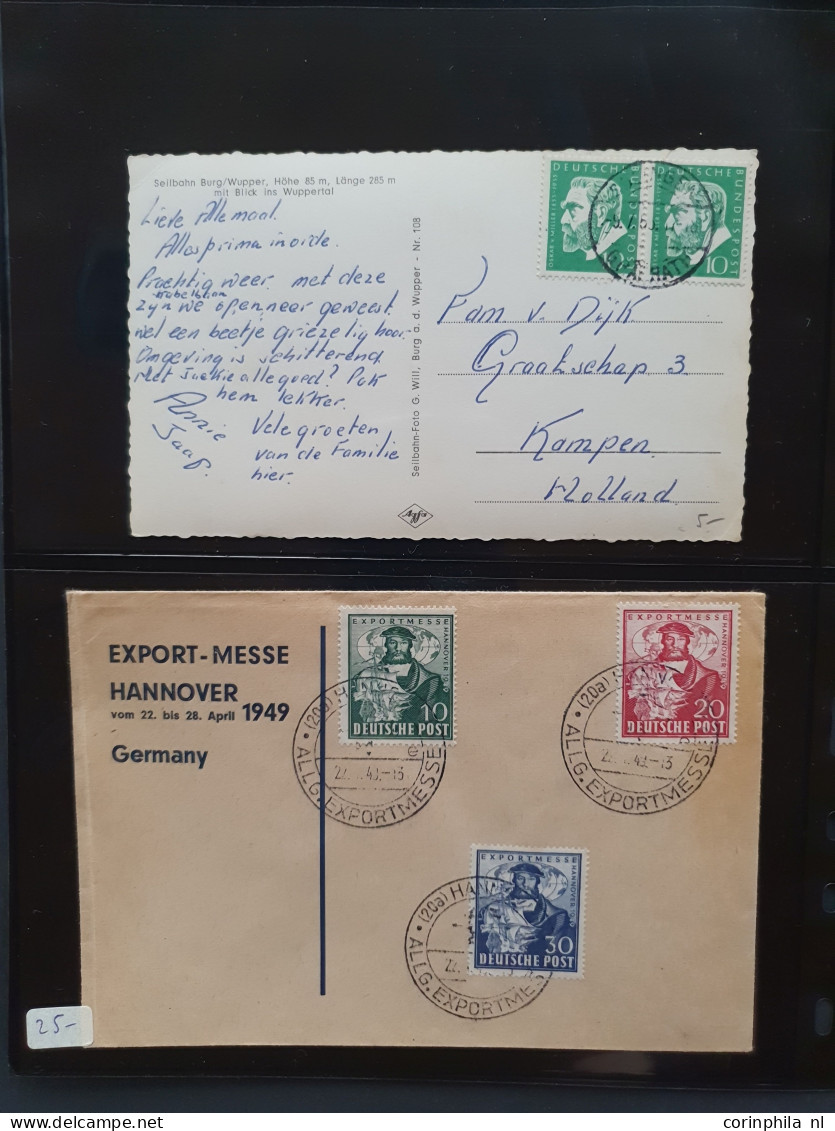 Seilbahn Burg/Wupper, Höhe 85 m, Länge 285 m
mit Blick ins Wuppertal
Lieve Allemaal.
Alles prima in orde.
Prachtig weer. met deze
kabelbaan
zyn we op en neer geweest
wel een beetje griezelig hoor.
Omgeving is schitterend
Met Jackie alles goed? Pak
hem lekker.
Annie
Jaap.
Vele groeten
van de Familie
hier.
Seilbahn-Foto G. Will, Burg a. d. Wupper - Nr. 108
Agfa
DEUTSCHE BUNDESPOST
OSKAR V. MILLER 1855-1955
DEUTSCHE BUNDESPOST
10
Fam v. Dijk
Graafschap 3
Kampen
Holland
5-
EXPORT-MESSE
HANNOVER
vom 22. bis 28. April 1949
Germany
EXPORTMESSE HANNOVER 1949
10
DEUTSCHE POST
(20a) HANN
22. 49.-13
ALLG. EXPORTMESSE
EXPORTMESSE HANNOVER 1949
20
DEUTSCHE POST
(20a) HANN
22. 49.-13
ALLG. EXPORTMESSE
EXPORTMESSE HANNOVER 1949
30
DEUTSCHE POST
(20a) HANN
22.
ALLG. EXPORTMESSE
25-
www.corinphila.nl